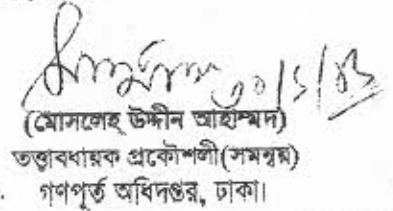 ৩০/১/০৩
(মোসলেহ উদ্দীন আহাম্মদ)
তত্ত্বাবধায়ক প্রকৌশলী(সমন্বয়)
গণপূর্ত অধিদপ্তর, ঢাকা।